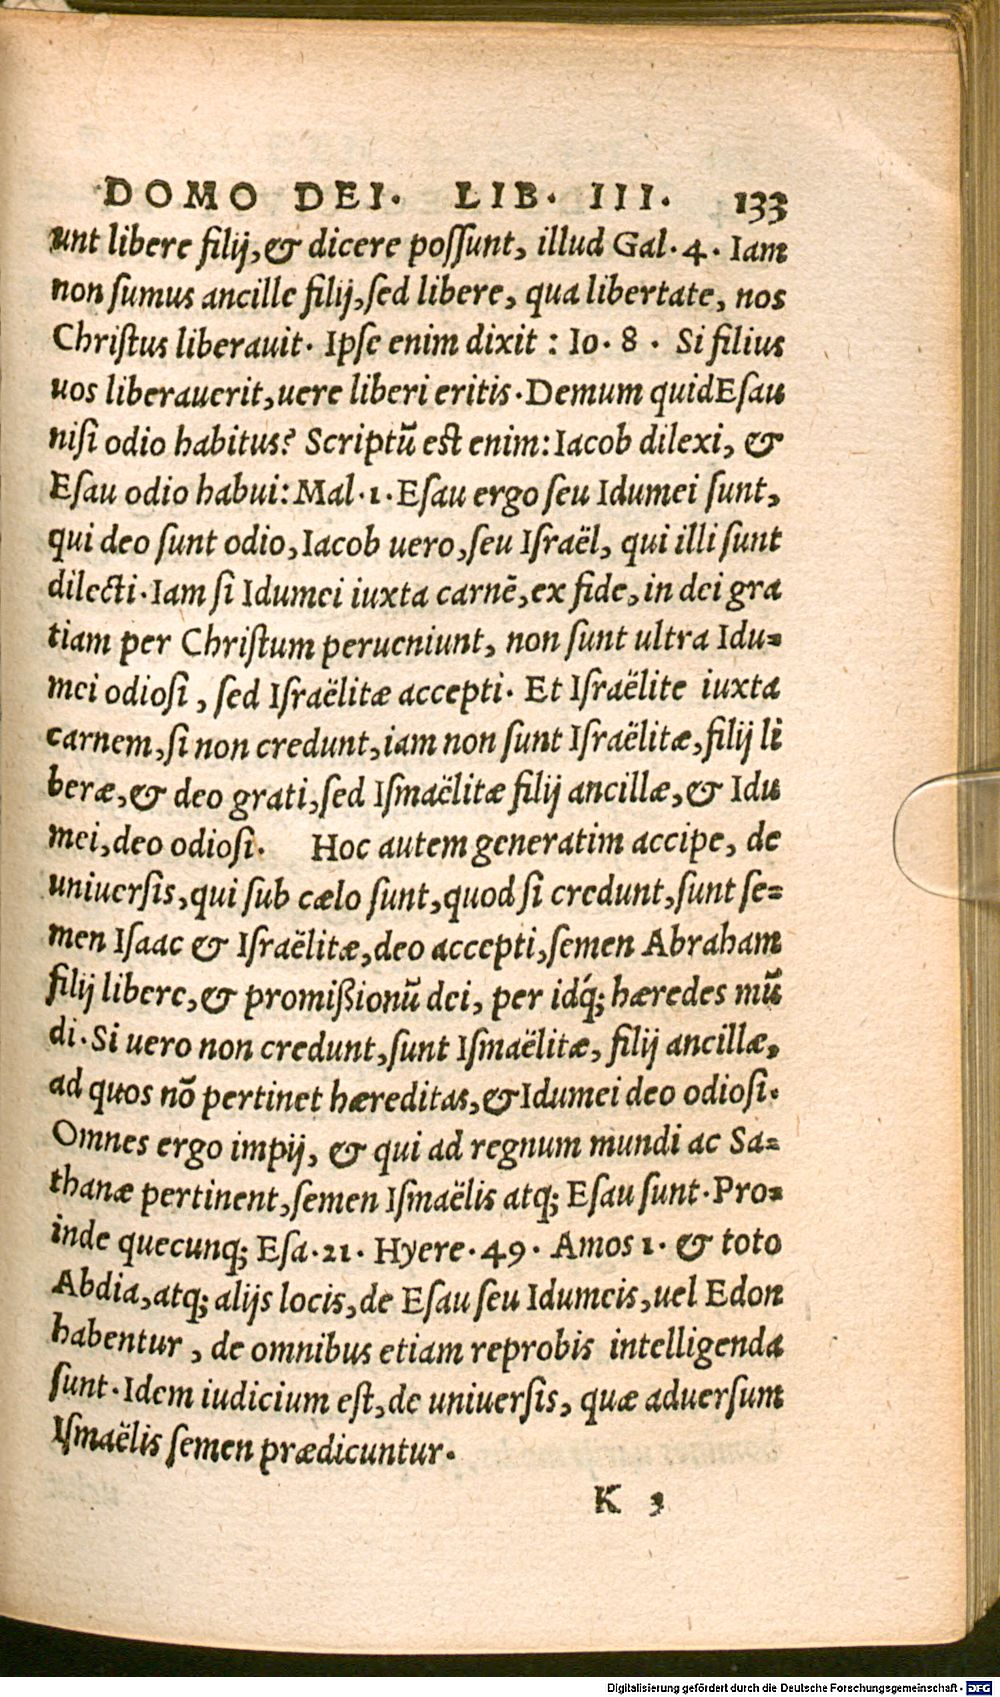 DOMO DEI. LIB. III. 133
unt libere filij, & dicere poſſunt, illud Gal. 4. Iam
non ſumus ancille filij, ſed libere, qua libertate, nos
Chriſtus liberauit. Ipſe enim dixit : Io. 8 . Si filius
uos liberauerit, uere liberi eritis. Demum quid Eſau
niſi odio habitus? Scriptū eſt enim: Iacob dilexi, &
Eſau odio habui: Mal. 1. Eſau ergo ſeu Idumei ſunt,
qui deo ſunt odio, Iacob uero, ſeu Iſraël, qui illi ſunt
dilecti. Iam ſi Idumei iuxta carnē, ex fide, in dei gra
tiam per Chriſtum perueniunt, non ſunt ultra Idu=
mei odioſi, ſed Iſraëlitæ accepti. Et Iſraëlite iuxta
carnem, ſi non credunt, iam non ſunt Iſraëlitæ, filij li
beræ, & deo grati, ſed Iſmaëlitæ filij ancillæ, & Idu
mei, deo odioſi. Hoc autem generatim accipe, de
uniuerſis, qui ſub cælo ſunt, quod ſi credunt, ſunt ſe=
men Iſaac & Iſraëlitæ, deo accepti, ſemen Abraham
filij libere, & promiſſionū dei, per idq́; hæredes mū
di. Si uero non credunt, ſunt Iſmaëlitæ, filij ancillæ,
ad quos nō pertinet hæreditas, & Idumei deo odioſi.
Omnes ergo impij, & qui ad regnum mundi ac Sa=
thanæ pertinent, ſemen Iſmaëlis atq; Eſau ſunt. Pro=
inde quecunq; Eſa. 21. Hyere. 49. Amos 1. & toto
Abdia, atq; alijs locis, de Eſau ſeu Idumeis, uel Edon
habentur, de omnibus etiam reprobis intelligenda
ſunt. Idem iudicium eſt, de uniuerſis, quæ aduerſum
Iſmaëlis ſemen prædicuntur.
K 3
Digitalisierung gefördert durch die Deutsche Forschungsgemeinschaft - DFG